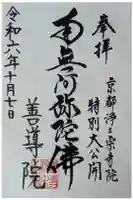 奉拝
京都浄土宗寺院
特別大公開
南無阿弥陀佛
善導院
令和六年十月七日